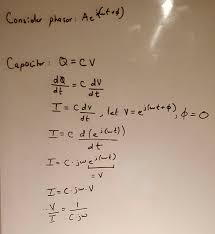 Consider phasor: Ae^i(ωt+φ)
Capacitor: Q = CV
dQ/dt = C dV/dt
I = C dV/dt, let V = e^j(ωt+φ), φ = 0
I = C d(e^j(ωt))/dt
I = C·jω e^j(ωt)
= V
I = C·jω·V
V/I = 1/C·jω